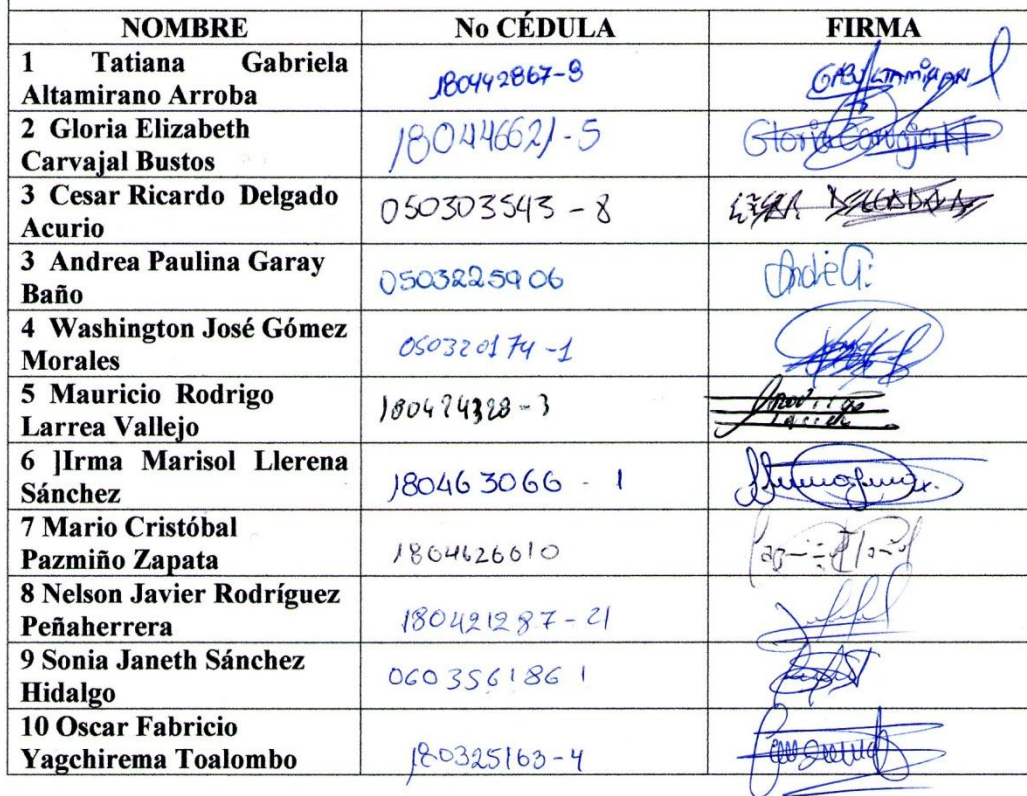 NOMBRE No CÉDULA FIRMA
1 Tatiana Gabriela
Altamirano Arroba
180442867-8
2 Gloria Elizabeth
Carvajal Bustos
180446621-5
Gloria Carvajal
3 Cesar Ricardo Delgado
Acurio
050303543-8
3 Andrea Paulina Garay
Baño
0503225906
Andre G.
4 Washington José Gómez
Morales
050320174-1
5 Mauricio Rodrigo
Larrea Vallejo
6 ]Irma Marisol Llerena
Sánchez
180463066-1
7 Mario Cristóbal
Pazmiño Zapata
1804626010
8 Nelson Javier Rodríguez
Peñaherrera
9 Sonia Janeth Sánchez
Hidalgo
0603561861
10 Oscar Fabricio
Yagchirema Toalombo
180325163-4